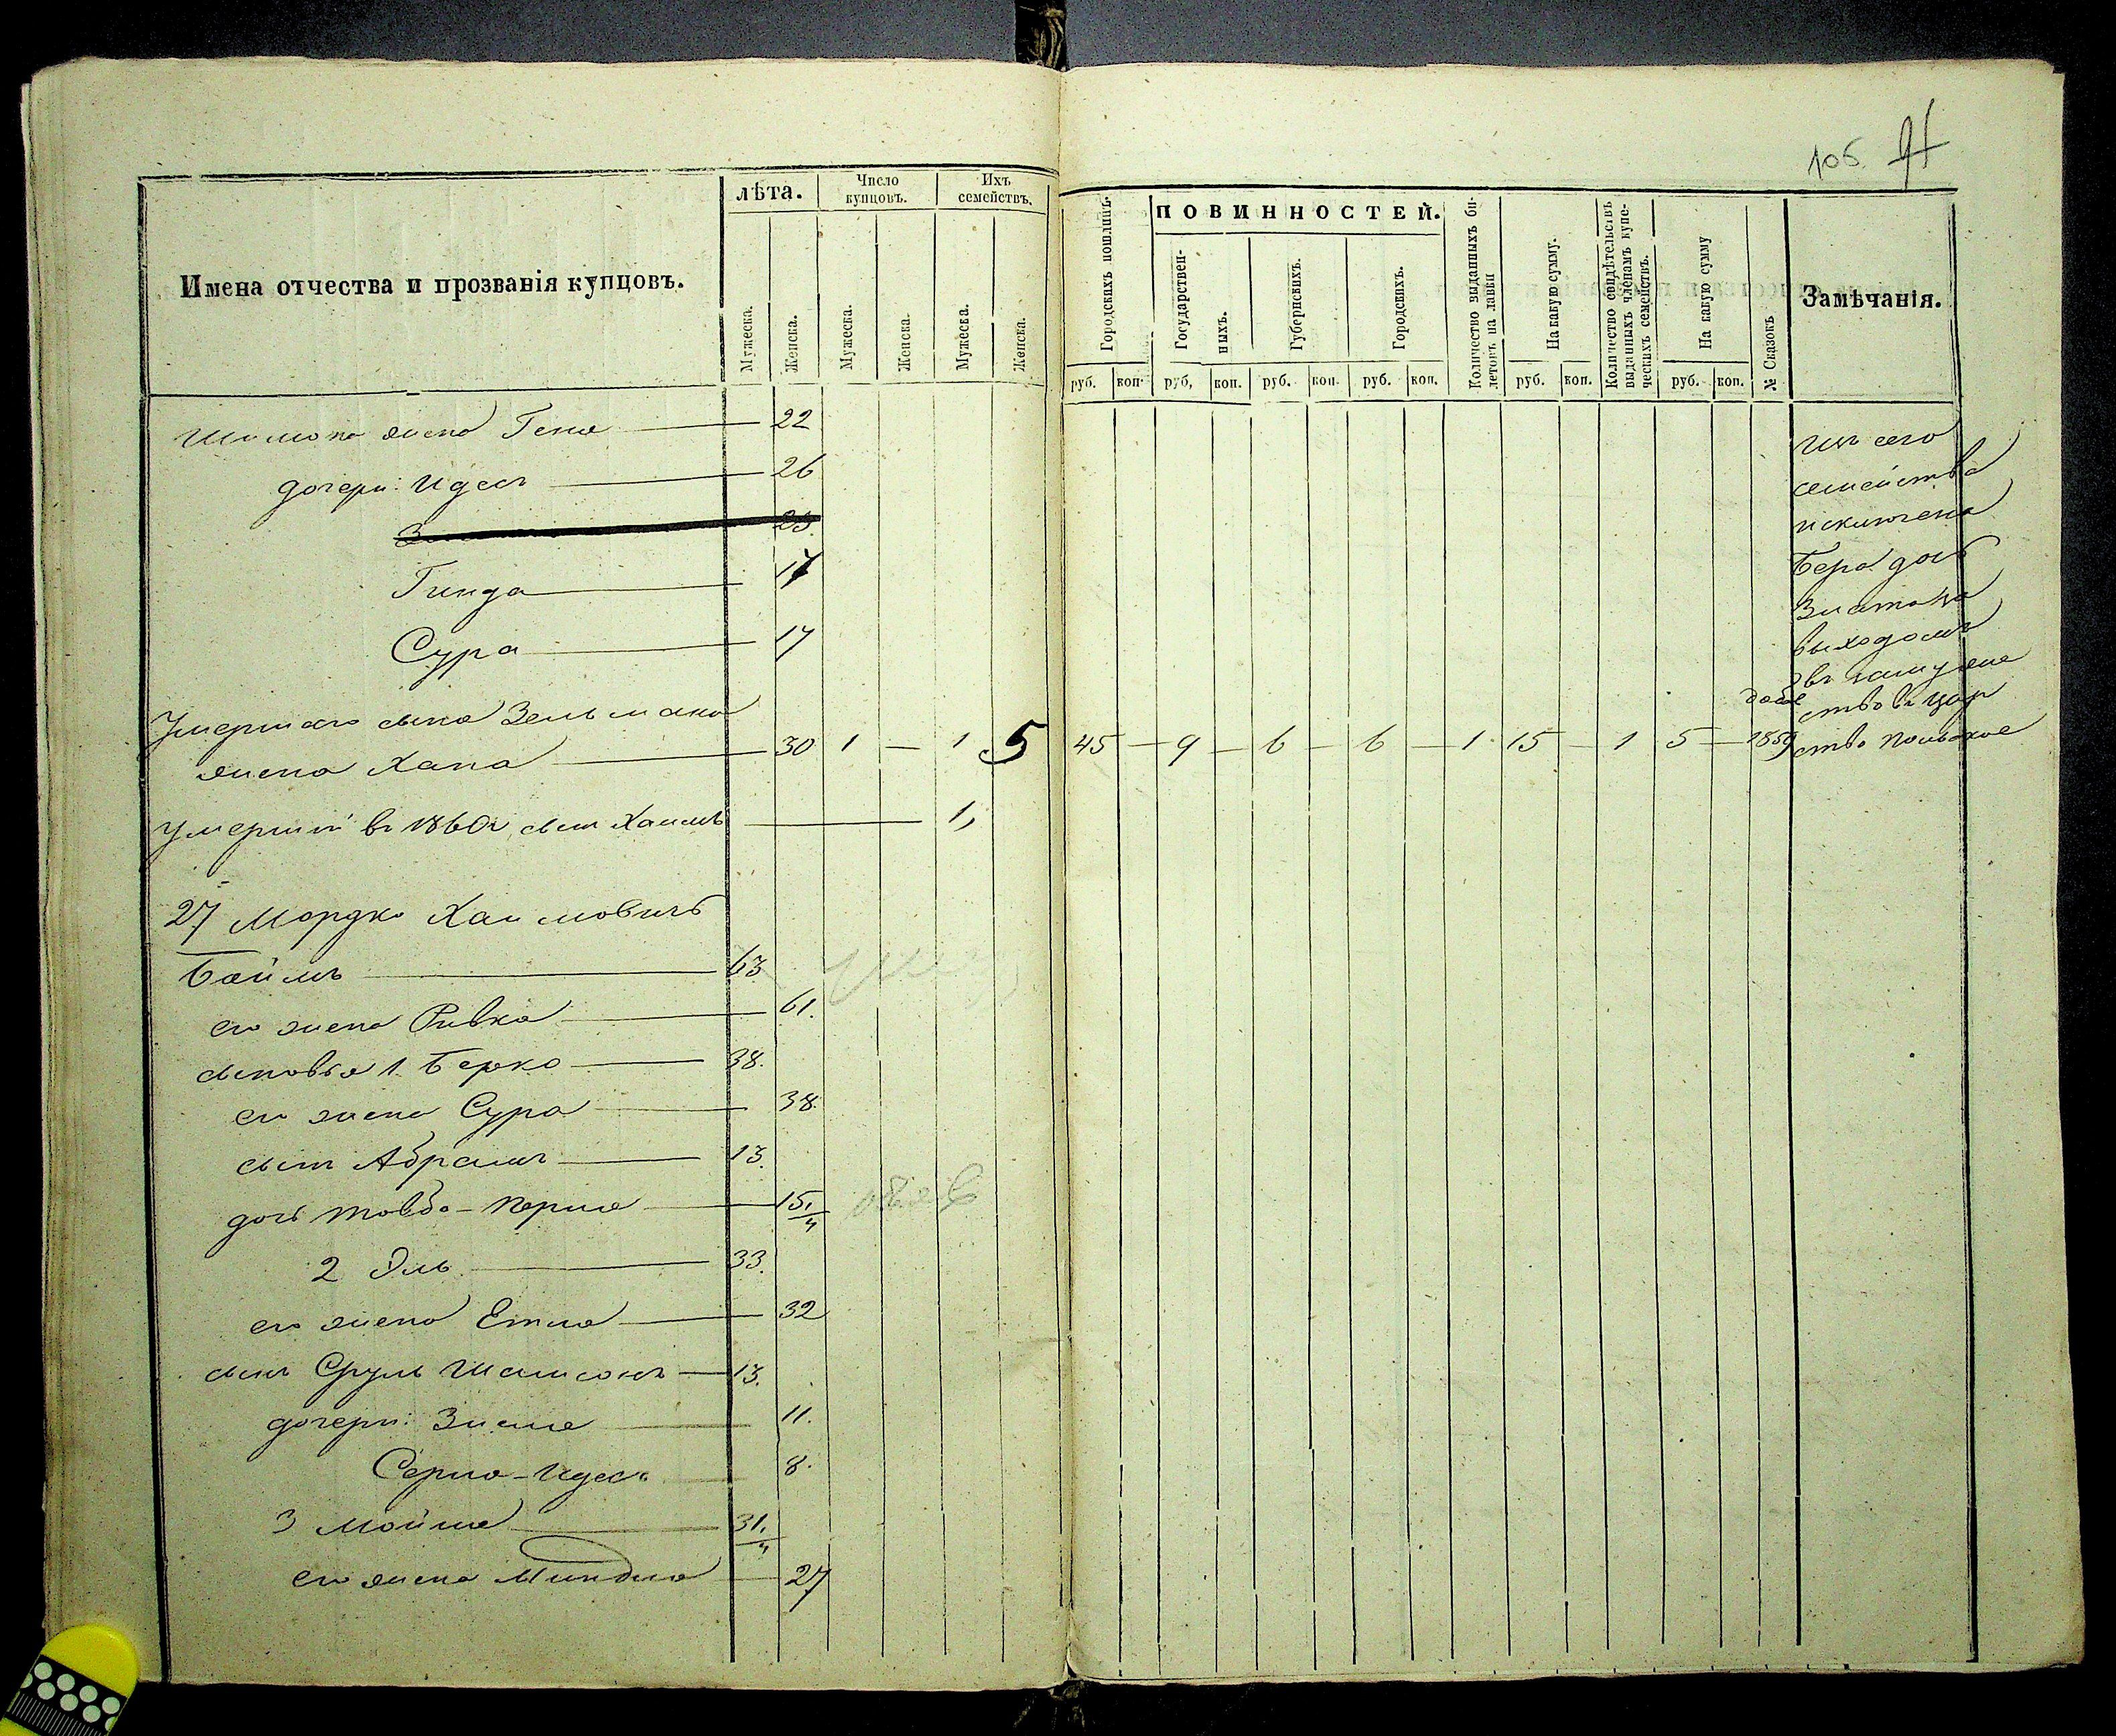 105
Имена отчества и прозванія купцовъ.
лѣта.
Мужеска.
Женска.
Число купцовъ.
Мужеска.
Женска.
Ихъ семействъ.
Мужеска.
Женска.
Городскихъ пошлинъ.
руб. коп.
ПОВИННОСТЕЙ.
Государствен-
ныхъ.
руб. коп.
Губернскихъ.
руб. коп.
Городскихъ.
руб. коп.
Количество выданныхъ би-
летовъ на лавки
На какую сумму.
руб. коп.
Количество свидѣтельствъ
выданныхъ членамъ купе-
ческихъ семействъ.
На какую сумму
руб. коп.
№ Сказокъ
Замѣчанія.
жена Геня — 22
дочери: Идесъ — 26
23.
Гинда — 17
Сура — 17
Умершаго сына Зельмана
жена Хана — 30 1 — 1 5 45 — 9 — 6 — 6 — 1 15 — 1 5 — 1859
Умершій въ 1860г. сынъ Хаимъ — 1,
27 Мордко Хаимовичъ
Боймъ — 63.
его жена Ривка — 61.
сыновья 1. Берко — 38.
его жена Сура — 38.
сынъ Абрамъ — 13.
дочь Товба-Перля — 15 1/4
2 Эль — 33.
его жена Етля — 32
сынъ Сруль Шамсонъ — 13.
дочери: Зисля — 11.
Идесъ — 8.
3 Мойше — 31 1/4
его жена Миндля — 27
изъ сего
семейства
исключена
Бера дочь
Златока
выходомъ
въ замуже
ство въ цар
ство Польское